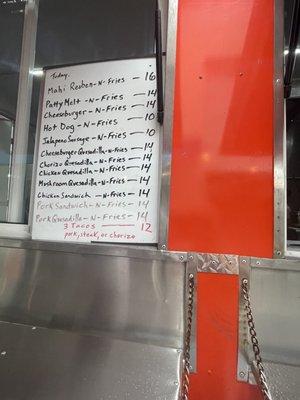 Today.
Mahi Reuben-N-Fries - 16
Patty Melt-N-Fries - 14
Cheeseburger-N-Fries - 14
Hot Dog-N-Fries - 10
Jalapeno Sausage-N-Fries - 10
Cheeseburger Quesadilla-N-Fries - 14
Chorizo Quesadilla-N-Fries - 14
Chicken Quesadilla-N-Fries - 14
Mushroom Quesadilla-N-Fries - 14
Chicken Sandwich-N-Fries - 14
Pork Sandwich-N-Fries - 14
Pork Quesadilla-N-Fries - 14
3 Tacos - 12
pork, steak, or chorizo